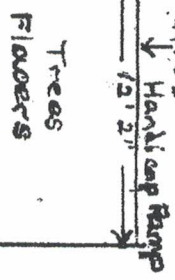 Handicap Ramp
12' 2"
Trees
Flowers